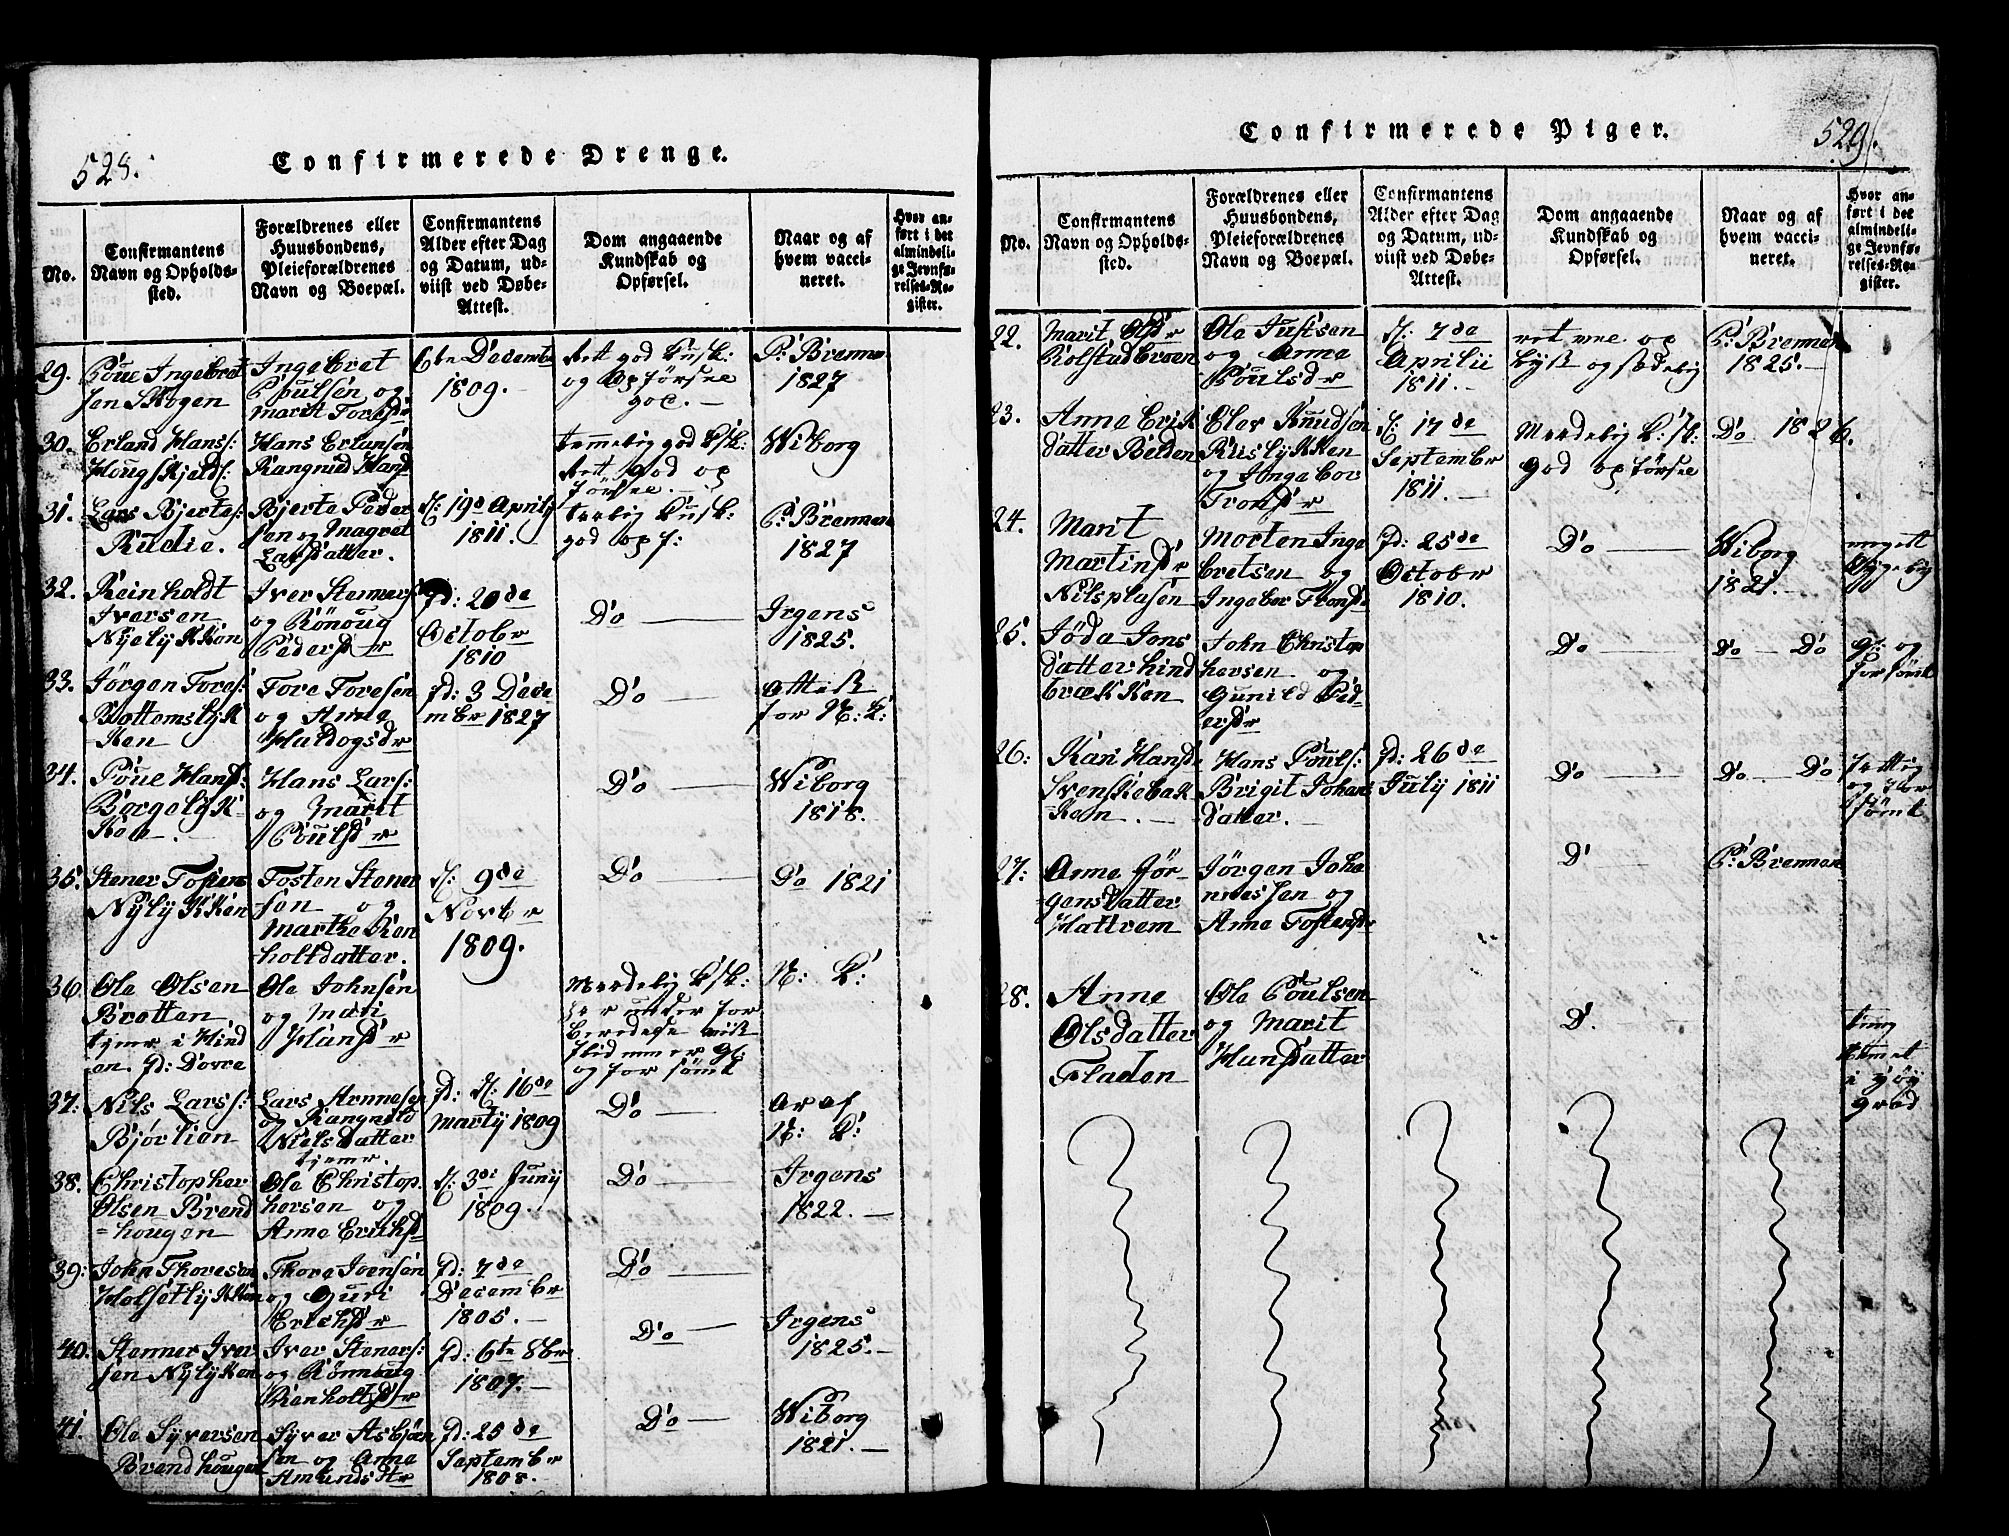 528.
Confirmerede Drenge.
No.
Confirmantens
Navn og Opholds-
sted.
Forældrenes eller
Huusbondens,
Pleieforældrenes
Navn og Boepæl.
Confirmantens
Alder efter Dag
og Datum, ud-
viist ved Døbe-
Attest.
Dom angaaende
Kundskab og
Opførsel.
Naar og af
hvem vacci-
neret.
Hvor an-
ført i det
almindeli-
ge Jevnfø-
relses-Re-
gister.
29.
Poue Ingebret
sen Skogen
Ingebret
Poulsen og
Marit Toresd
6te Decembr
1809.
Ret god Kusk:
og Opførsee
god.
P: Brennen
1827
30.
Erland Hans:
Hougskjeld:
Hans Erlansen
Rangnid Hans
temmelig god Ksk:
Ret god op
førsee.
Wiborg
31.
Lars Bjertes:
Rudie.
Bjerte Peder
sen og Magret
Larsdatter.
D: 19de Aprily
1811.
Kusk:
god opf:
P: Brennen
1827
32.
Reinholdt
Iversen
Nyelykken
Iver Stenners
og Rönoug
Pedersdr
Fd: 20de
Octobr
1810
Do
Irgens
1825.
33.
Jörgen Tores:
Bottemslyk
Ken
Tore Toresen
og Anne
Haldogsdr
Fd: 3 Dece
mbr 1827
Do
Attest
for N: K:
34.
Poue Hans:
Borgelyk-
Ken
Hans Lars:
og Marit
Poulsdr
Do
Wiborg
1818.
35.
Stener Tosten
Nylykken
Tosten Stener
sen og
Marthe Ren
holtdatter.
D: 9de
Novbr
1809.
Do
Do 1821
36
Ole Olsen
Brotten
tjener i Hind
en. Fd: Dovre
Ole Johnsen
og Mari
Hansdr
Maadelig Ksk:
under for
beredese
og forsömt
N: K:
37.
Nils Larss:
Bjorlien
Lars Arnnesen
og Rangneld
Nielsdatter
tjener.
Fd: D: 16de
Marty 1809
Do
Ar af
N: K:
38.
Christopher
Olsen Brend
=hougen
Ole Christop
hersen og
Anne Erichsd
D: 3de Juny
1809.
Do
Irgens
1822.
39.
John Thoresen
Holsetlykken
Thore Joensen
og Guri
Erichsdr
Fd: 7de
Decembr
1805.
Do
40.
Stenner Iver
sen Nylyken
Iver Steners:
og Rönnoug
Renholtsdr
Fd: 6te 8br
1807.
Do
Irgens
1825.
41.
Ole Syversen
Brendhougen
Syver Asbjön
sen og Anne
Amundsdtr
Fd: 25de
Septembr
1808.
Do
Wiborg
1821.
Confirmerede Piger.
529.
No.
Confirmantens
Navn og Opholds-
sted.
Forældrenes eller
Huusbondens,
Pleieforældrenes
Navn og Boepæl.
Confirmantens
Alder efter Dag
og Datum, ud-
viist ved Døbe-
Attest.
Dom angaaende
Kundskab og
Opførsel.
Naar og af
hvem vacci-
neret.
Hvor an-
ført i det
almindeli-
ge Jevnfø-
relses-Re-
gister.
22.
Marit Olsdr
Rolstadbroen
Ole Justsen
og Anne
Poulsdr
D: 7de
Aprilii
1811.
og sædelig
P: Brennen
1825.
23.
Anne Erik
datter Belden
Elor Knudsen
Ruslykken
og Ingebor
Tronsdr
D: 17de
Septembr
1811.
Maadelig K:sk:
god opførsee
Do 1826.
24.
Marit
Martinsdr
Nilsplasen
Morten Inge
bretsen og
Ingebor Tronsdr
Fd: 25de
Octobr
1810.
Do
Wiborg
1821.
meget
25.
Jöda Jons
datter hind
brækken
John Christop
hersen og
Gunild Ped-
ersdr
Do
Do Do
og
forsömt
26:
Kari Hansd
Svenskebak
Ken.
Hans Pouls:
Brigit Johans
datter.
Fd: 26de
July 1811
Do
Do Do
fattig
og for
sömt
27:
Anne Jör-
gensdatter
Hattrem
Jörgen Joha
nnessen og
Anne Tostensdr
D
P: Brennen
28.
Anne
Olsdatter
Fladen
Ole Poulsen
og Marit
Hansdatter
D.
tung
nemet
i höy
grad